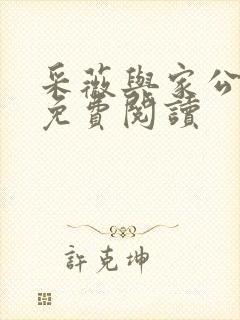 采薇與家公
免費閱讀
許克坤